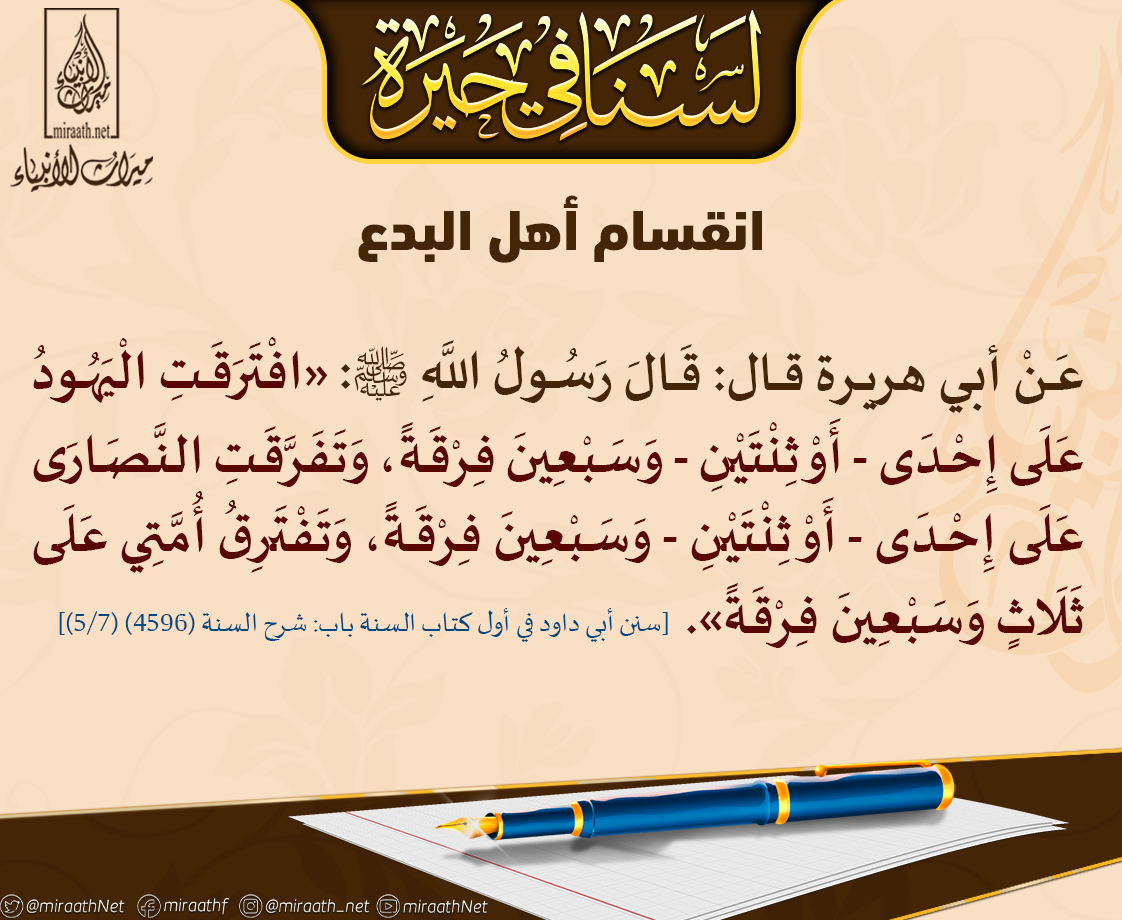 لسنا في حيرة
ميراث الأنبياء
miraath.net
ميراث الأنبياء
انقسام أهل البدع
عَنْ أبي هريرة قال: قَالَ رَسُولُ اللَّهِ ﷺ: «افْتَرَقَتِ الْيَهُودُ
عَلَى إِحْدَى - أَوْ ثِنْتَيْنِ - وَسَبْعِينَ فِرْقَةً، وَتَفَرَّقَتِ النَّصَارَى
عَلَى إِحْدَى - أَوْ ثِنْتَيْنِ - وَسَبْعِينَ فِرْقَةً، وَتَفْتَرِقُ أُمَّتِي عَلَى
ثَلَاثٍ وَسَبْعِينَ فِرْقَةً». [سنن أبي داود في أول كتاب السنة باب: شرح السنة (4596) (5/7)]
@miraathNet miraathf @miraath_net miraathNet